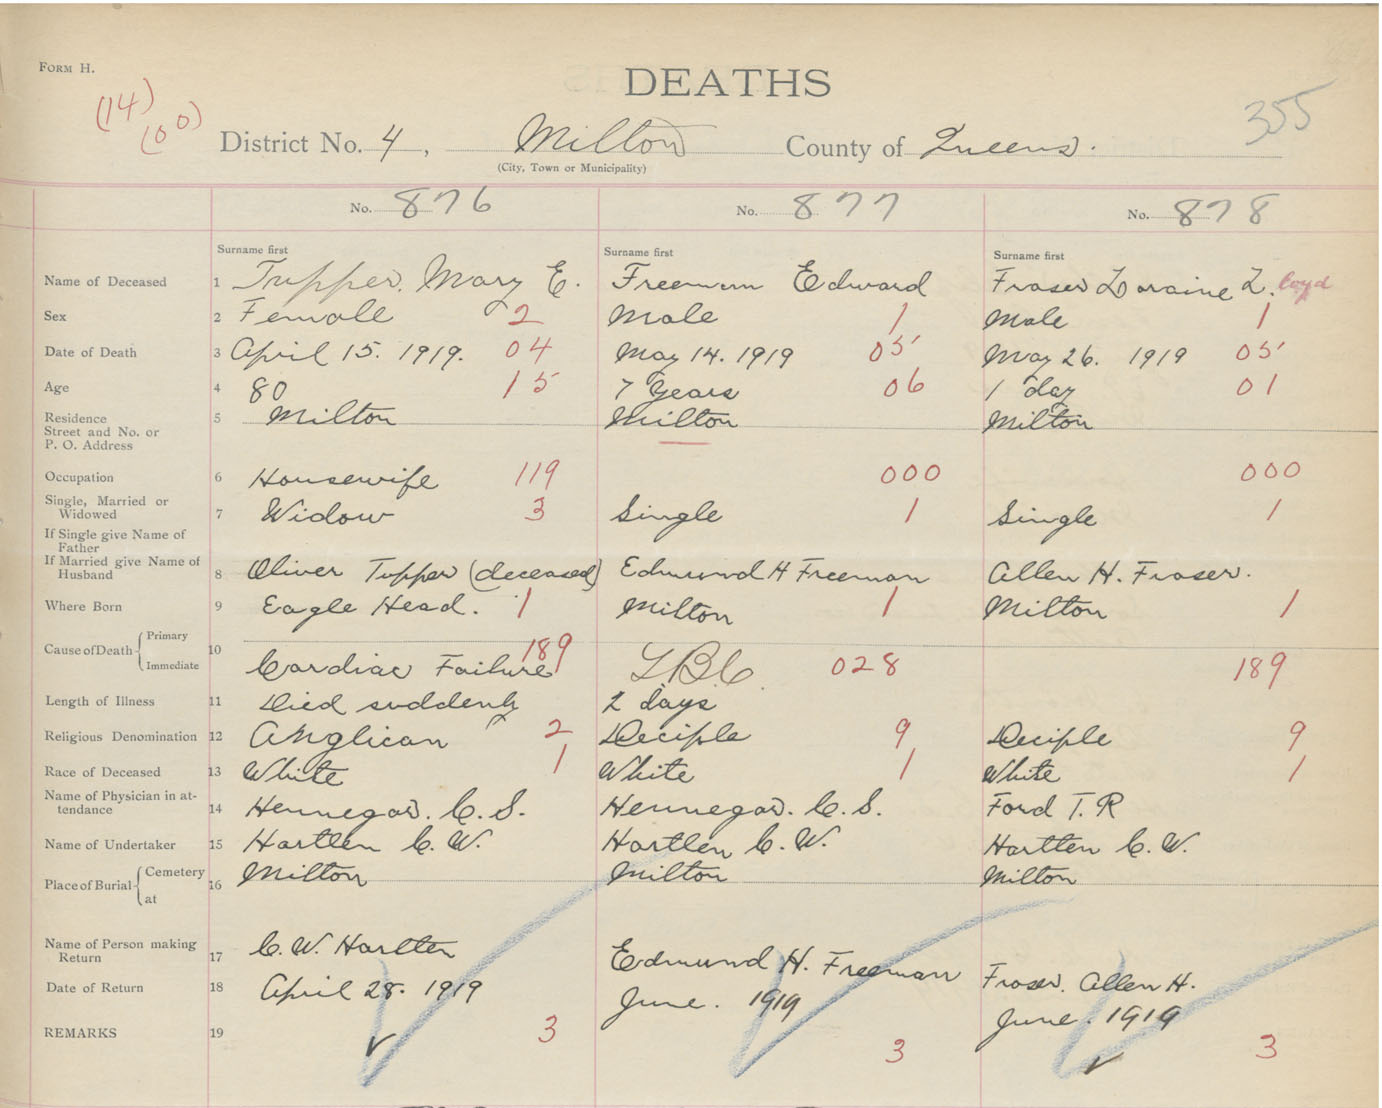 FORM H.
DEATHS
(14)
(00)
355
District No. 4, Milton County of Queens.
(City, Town or Municipality)
No. 876 No. 877 No. 878
Surname first Surname first Surname first
Name of Deceased 1 Tupper, Mary E. Freeman Edward Fraser Loraine L. loyd
Sex 2 Female 2 Male 1 Male 1
Date of Death 3 April 15. 1919. 04 May 14. 1919 05 May 26. 1919 05
Age 4 80 15 7 Years 06 1 day 01
Residence 5 Milton Milton Milton
Street and No. or
P. O. Address
Occupation 6 Housewife 119 000 000
Single, Married or
Widowed 7 Widow 3 Single 1 Single 1
If Single give Name of
Father
If Married give Name of
Husband 8 Oliver Tupper (deceased) Edmund H Freeman Allen H. Fraser.
Where Born 9 Eagle Head. 1 Milton 1 Milton 1
Cause of Death { Primary 10 189
Immediate Cardiac Failure T.B.C. 028 189
Length of Illness 11 Died suddenly 2 days
Religious Denomination 12 Anglican 2 Deciple 9 Deciple 9
Race of Deceased 13 White 1 White 1 White 1
Name of Physician in at-
tendance 14 Hennegar. C. S. Hennegar. C. S. Ford T. R
Name of Undertaker 15 Hartlen C. W. Hartlen C. W. Hartlen C. W.
Place of Burial { Cemetery 16 Milton Milton Milton
at
Name of Person making
Return 17 C. W. Hartlen Edmund H. Freeman Fraser. Allen H.
Date of Return 18 April 28. 1919 June. 1919 June. 1919
REMARKS 19 3 3 3